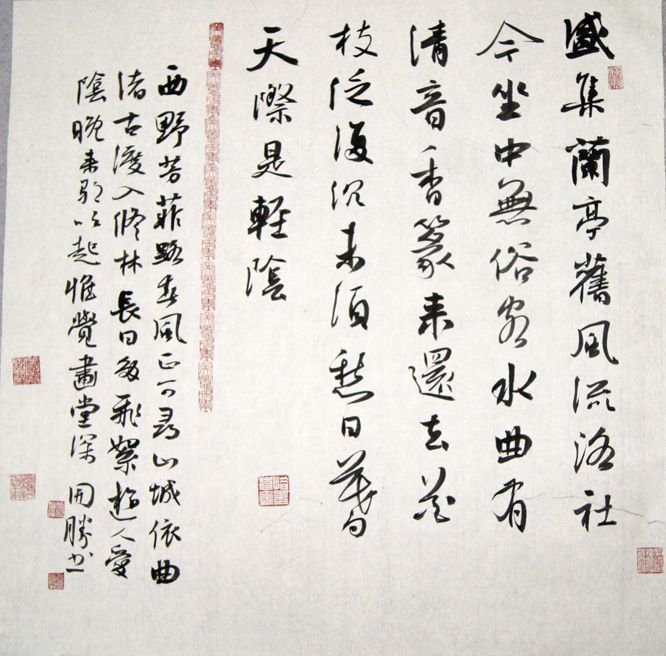 盛集蘭亭舊風流洛社
今坐中無俗客水曲有
清音香篆来還去花
枝泛復沉未須愁日暮
天際是輕陰
西野芳菲路春風正可尋山城依曲
渚古渡入修林長日多飛絮遊人愛
陰晚来歌吹起惟覺畫堂深 開勝書